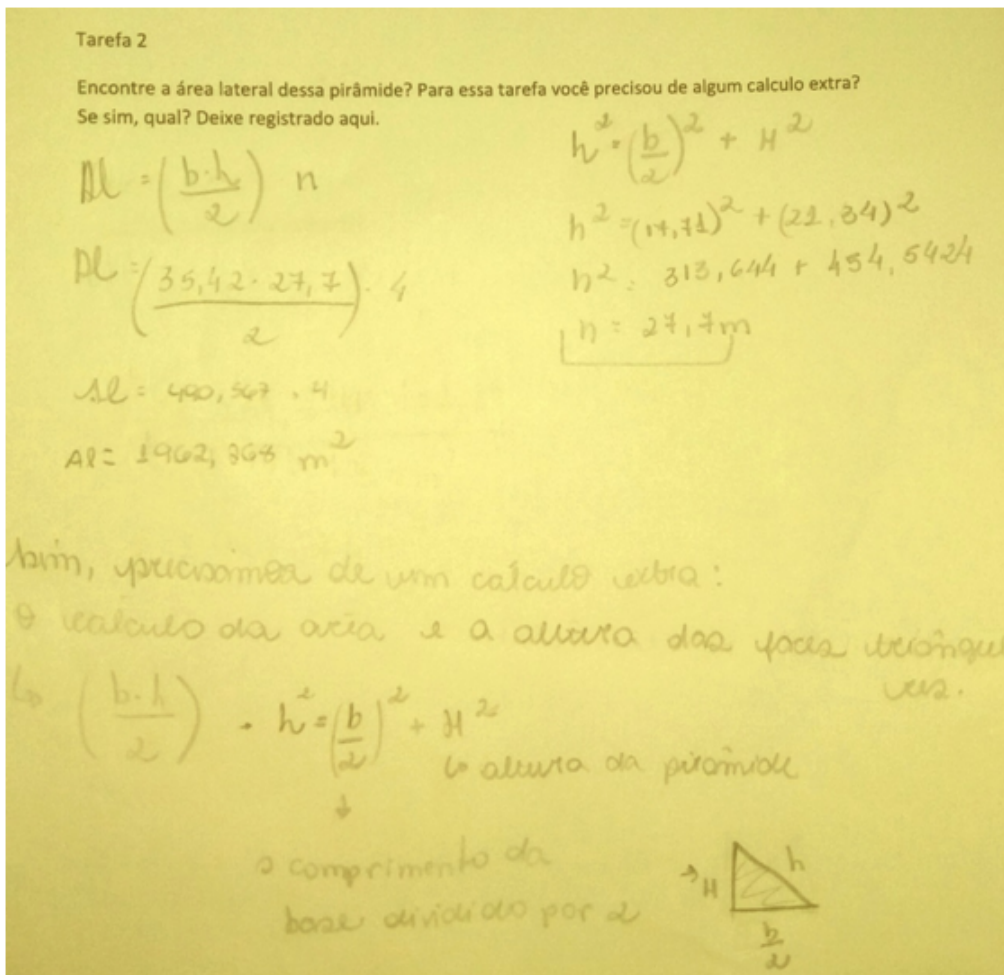 Tarefa 2
Encontre a área lateral dessa pirâmide? Para essa tarefa você precisou de algum calculo extra?
Se sim, qual? Deixe registrado aqui.
Al = (b.h/2) n
Al = (35,42 . 27,7/2) . 4
Al = 490,567 . 4
Al = 1962,268 m²
h² = (b/2)² + H²
h² = (17,71)² + (21,34)²
h² = 313,644 + 454,5424
h = 27,7m
Sim, precisamos de um calculo extra:
O calculo da area e a altura das faces triangu
res.
↳ (b.h/2) . h² = (b/2)² + H²
↳ altura da piramide
↓
o comprimento da
base dividido por 2
→ H h
b/2